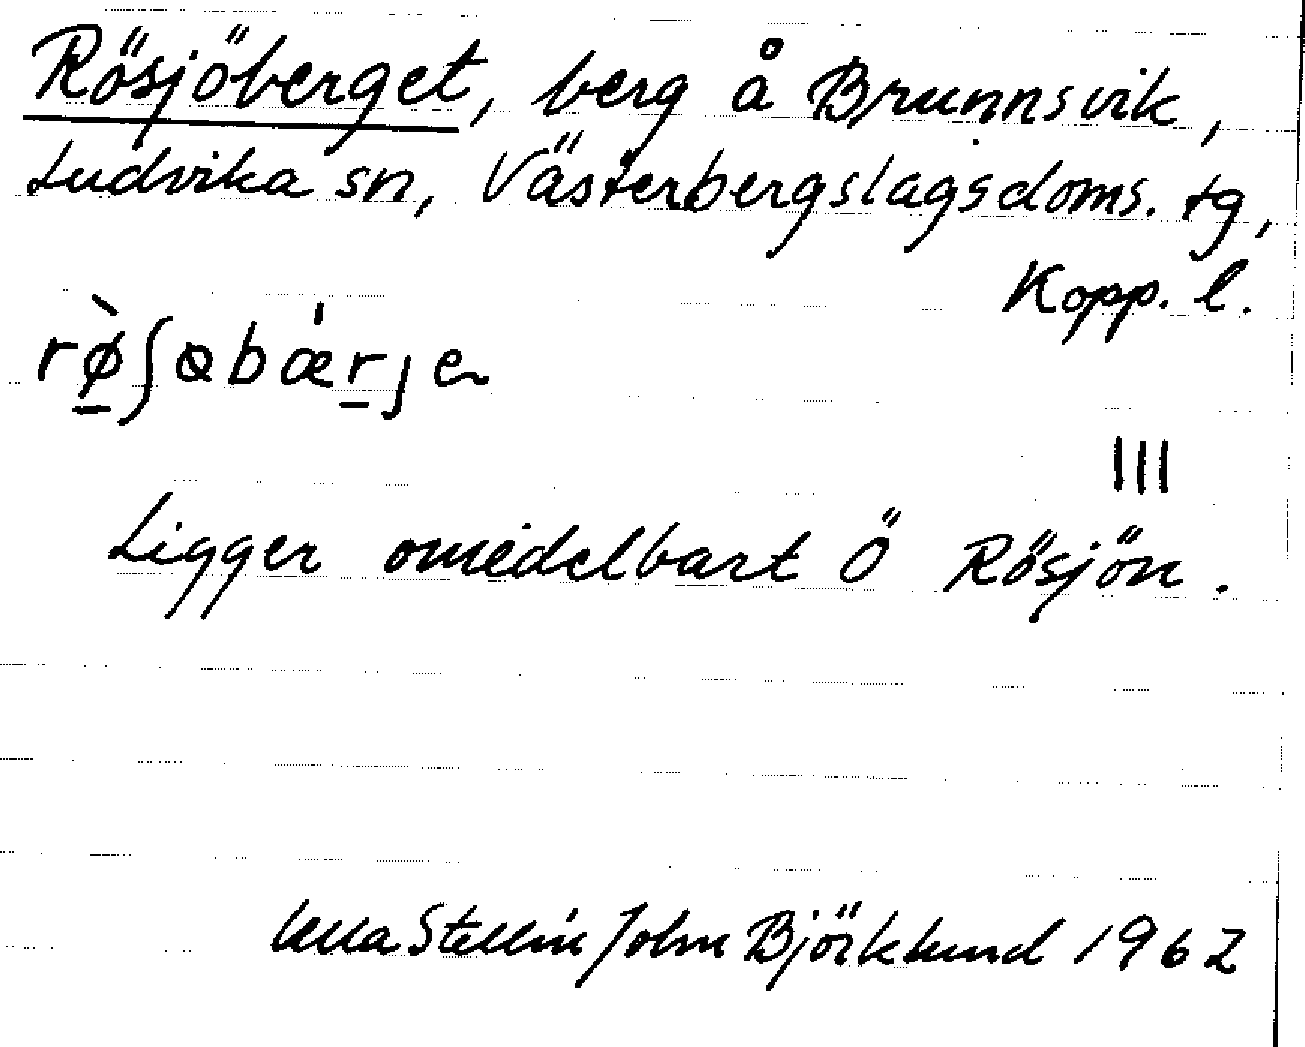 Rösjöberget, berg å Brunnsvik,
Ludvika sn, Västerbergslagsdoms. tg,
Kopp. l.
III
Ligger omedelbart Ö Rösjön.
Ulla Stellin John Björklund 1962